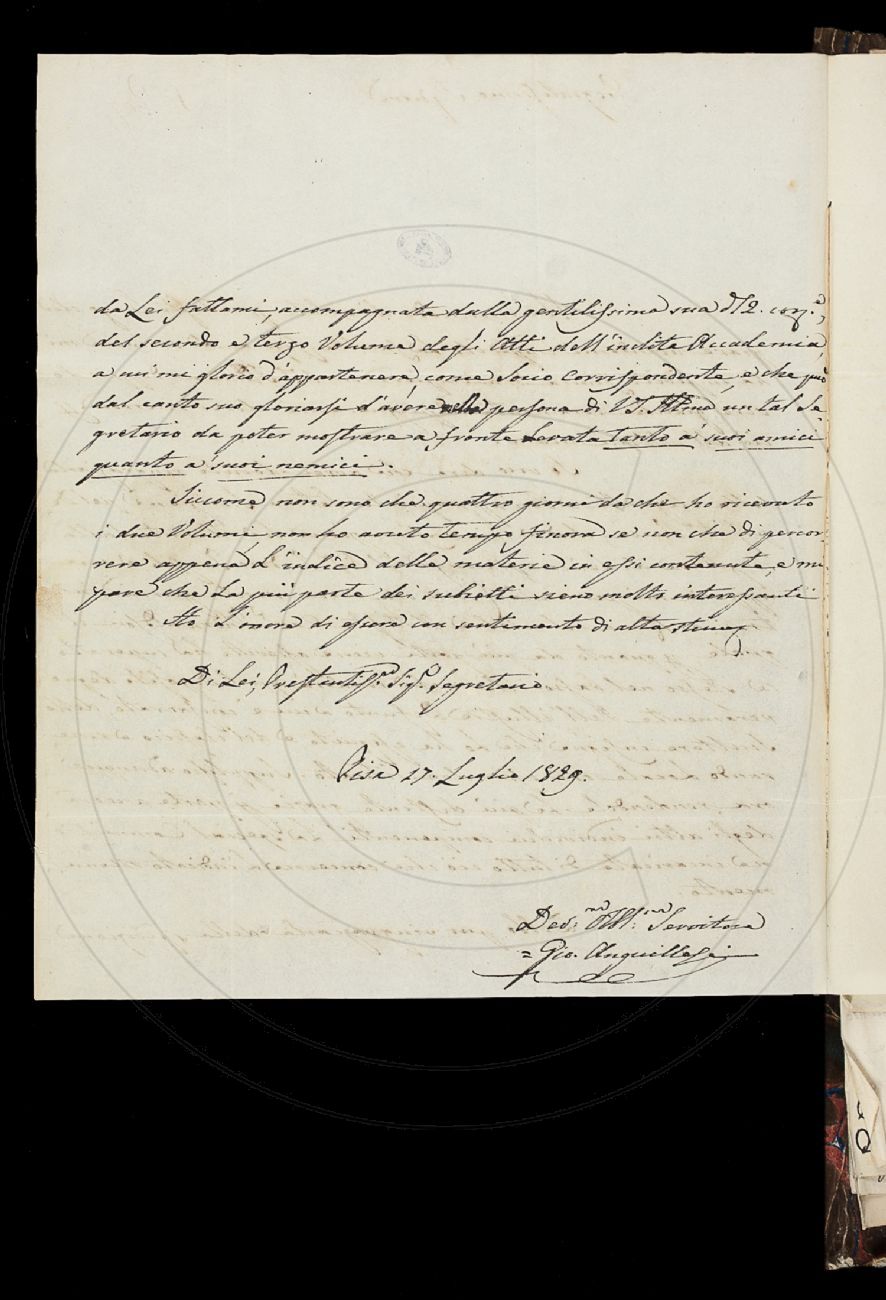 da Lei fattami, accompagnata dalla gentilissima sua de' 12. corr.e,
del secondo e terzo Volume degli Atti dell'inclita Accademia,
a cui mi glorio d'appartenere, come Socio Corrispondente, e che può
dal canto suo gloriarsi d'avere nella persona di V.S. Illma un tal Se-
gretario da poter mostrare a fronte Levata tanto a' suoi amici
quanto a' suoi nemici.
Siccome non sono che quattro giorni da che ho ricevuto
i due Volumi, non ho avuto tempo finora se non che di percor-
rere appena L'indice delle materie in essi contenute, e mi
pare che La più parte dei subietti sieno molto interessanti.
Ho L'onore di essere con sentimento di alta stima
Di Lei, Prestantiss.o Sig.r Segretario
Pisa 17. Luglio 1829.
Dev:mo Obb:mo Servitore
= Gio. Anguillesi